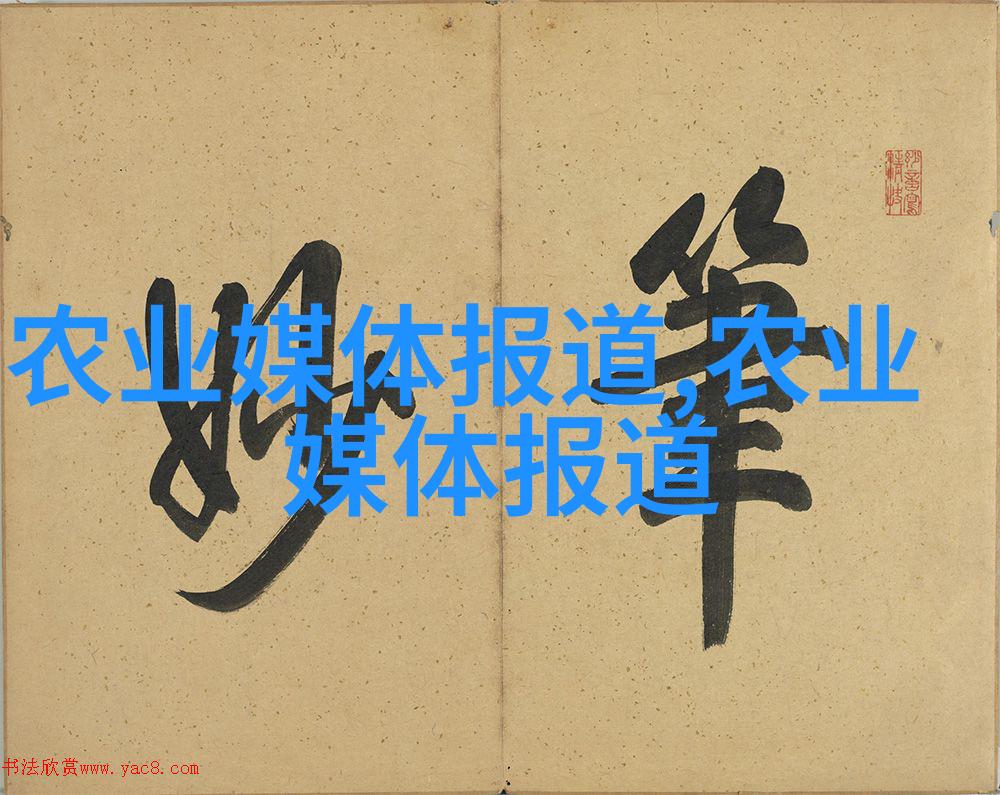 农业媒体报道,农业
媒体报道
筆妙
书法欣赏www.yac8.com